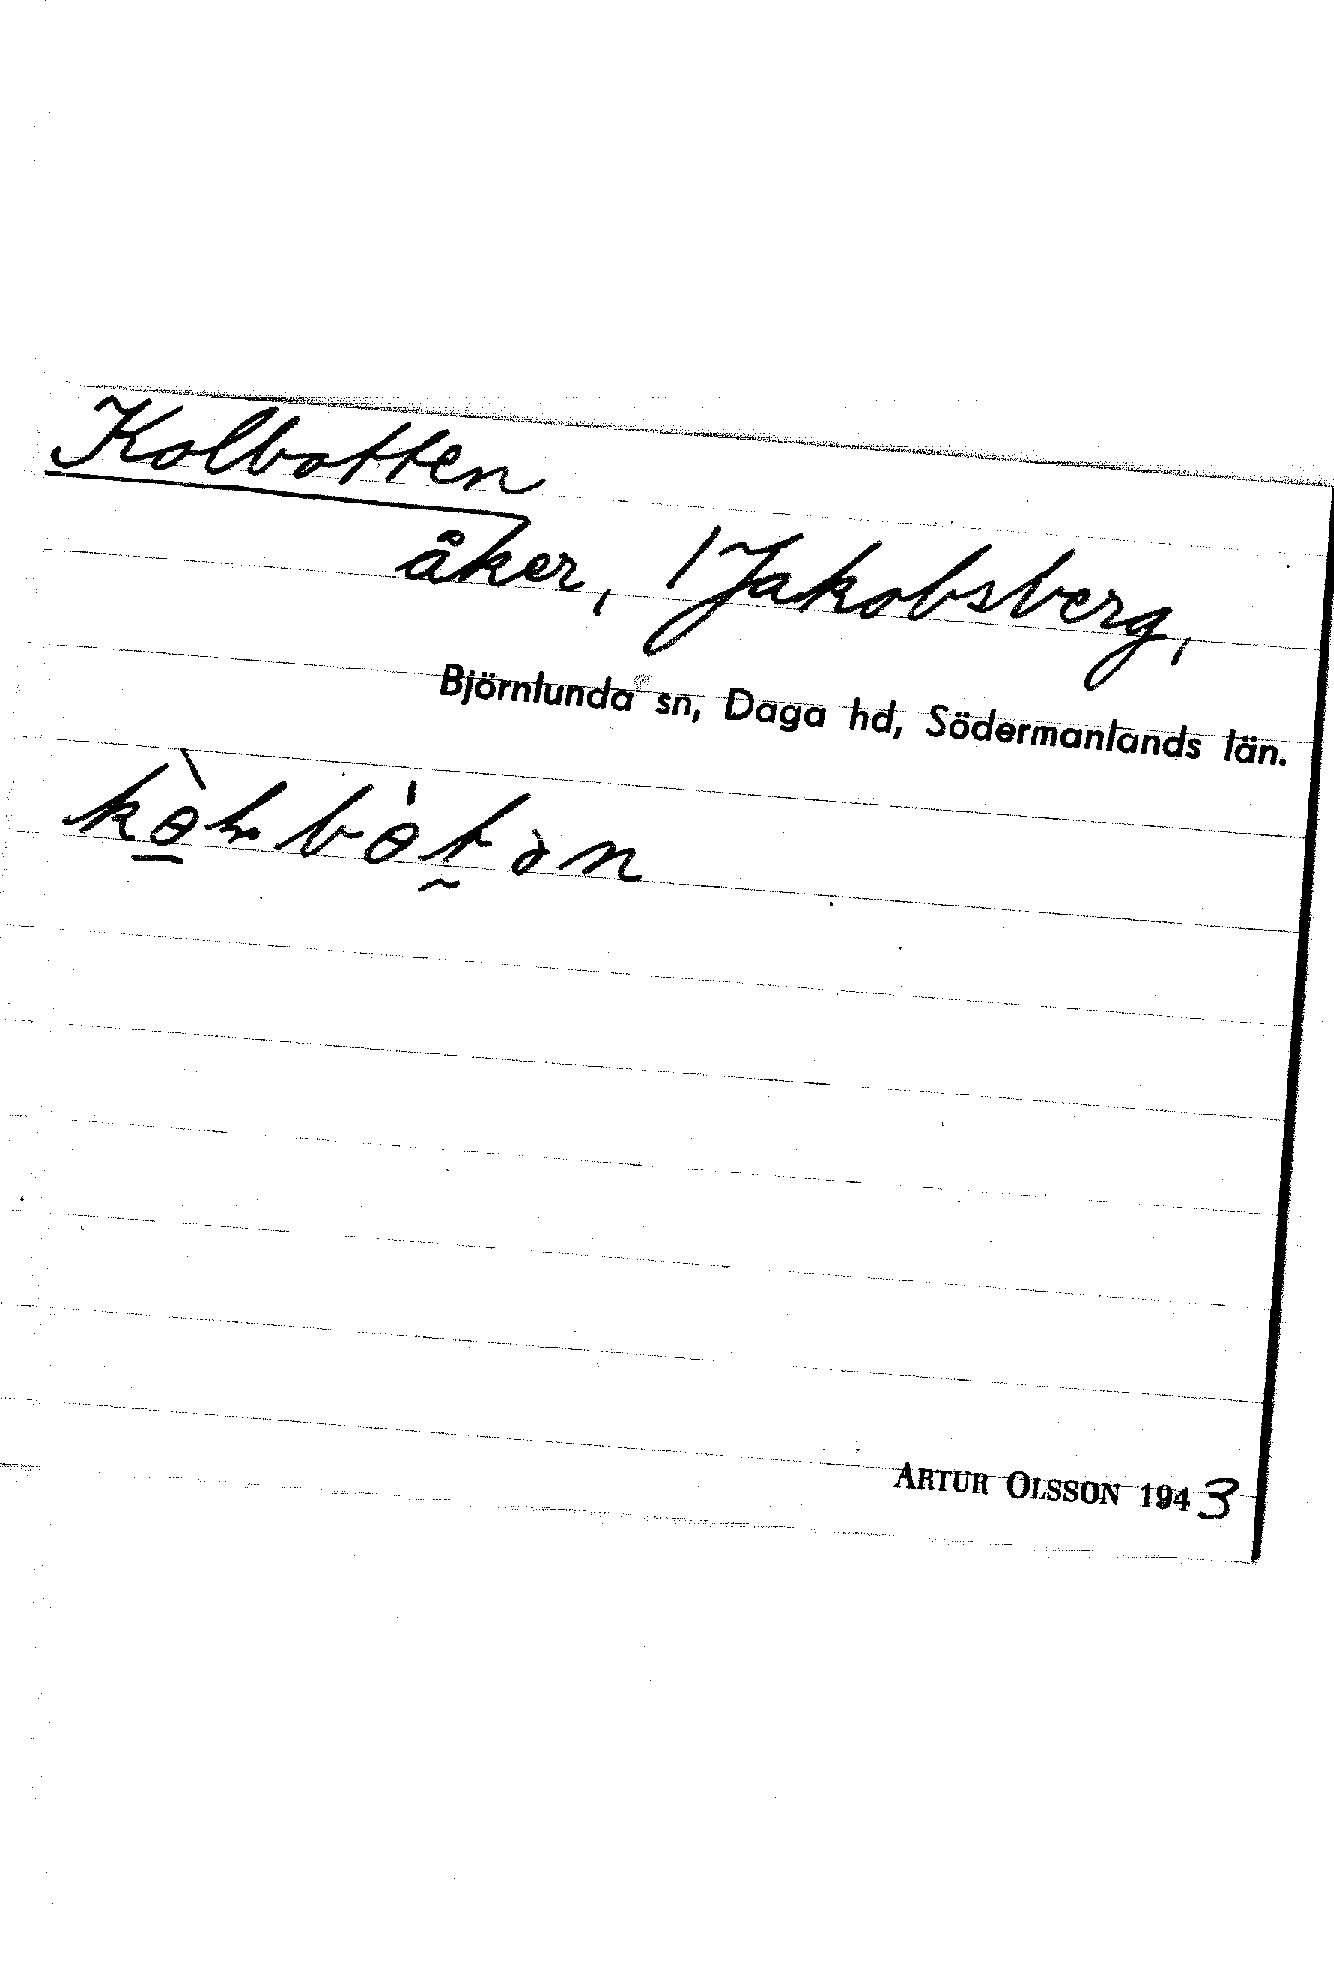 Kolbotten
åker, 1 Jakobsberg,
Björnlunda sn, Daga hd, Södermanlands län.
ARTUR OLSSON 1943